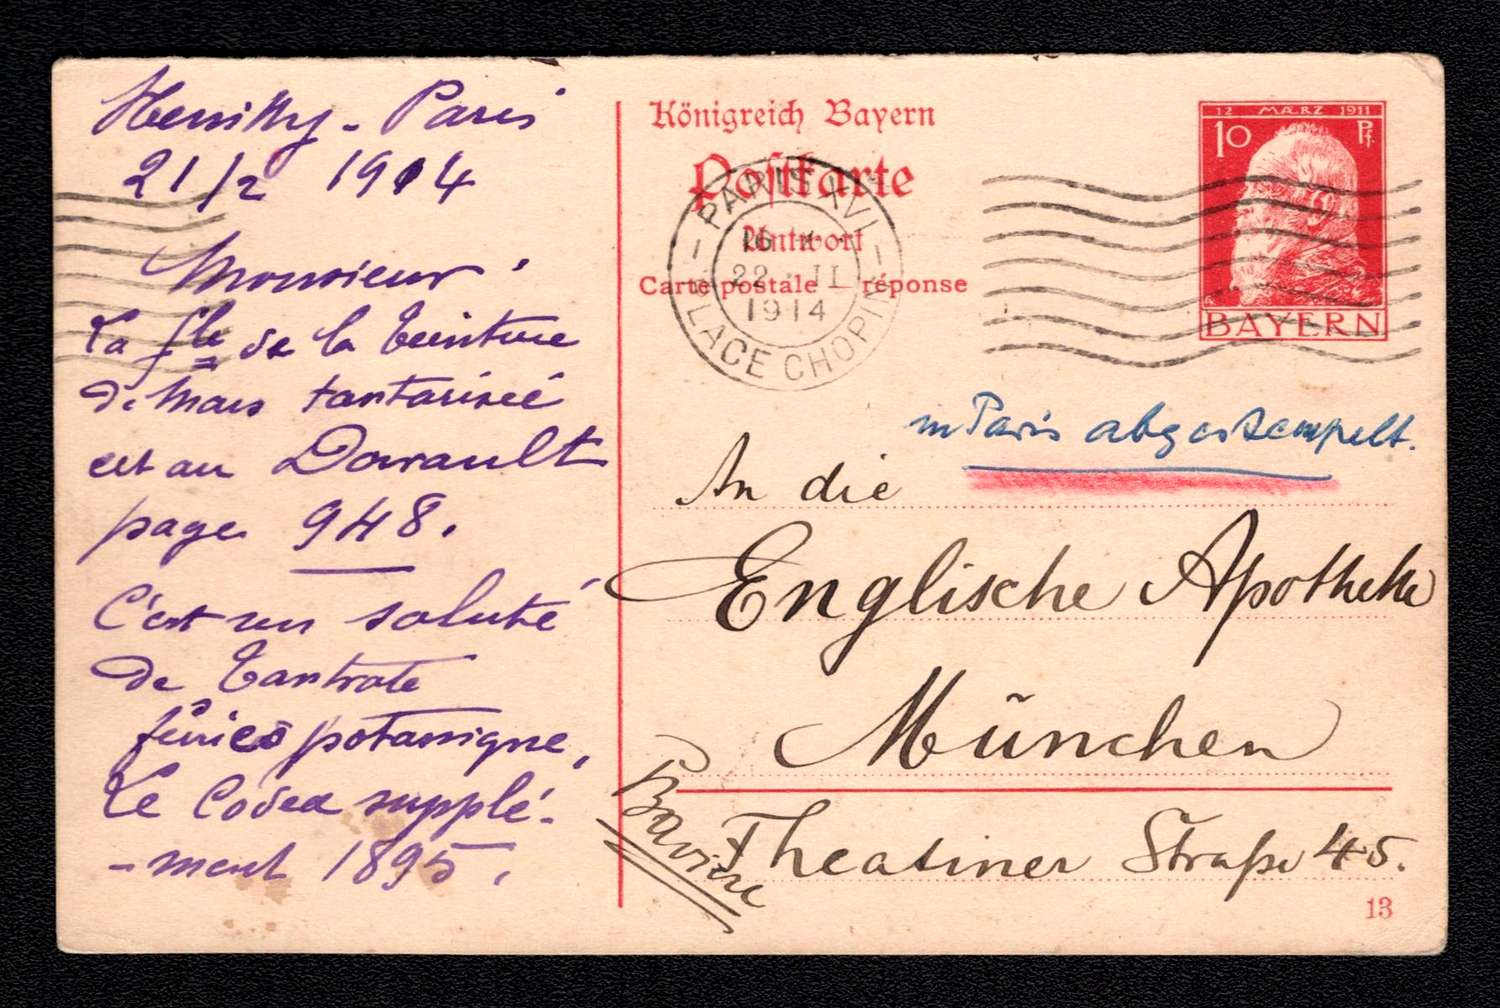 Neuilly - Paris
21/2 1914
Monsieur
La fle de la teinture
de Mars tartarisée
est au Dorvault
page 948.
C'est un soluté
de Tartrate
ferrico potassique,
Le Codex supplé-
-ment 1895.
Königreich Bayern
Postkarte
Antwort
Carte postale – réponse
PARIS XVI
16
22 · II
1914
PLACE CHOPIN
12 MÆRZ 1911
10 Pf.
BAYERN
in Paris abgestempelt.
An die
Englische Apotheke
München
Bavière
Theatiner Straße 45.
13